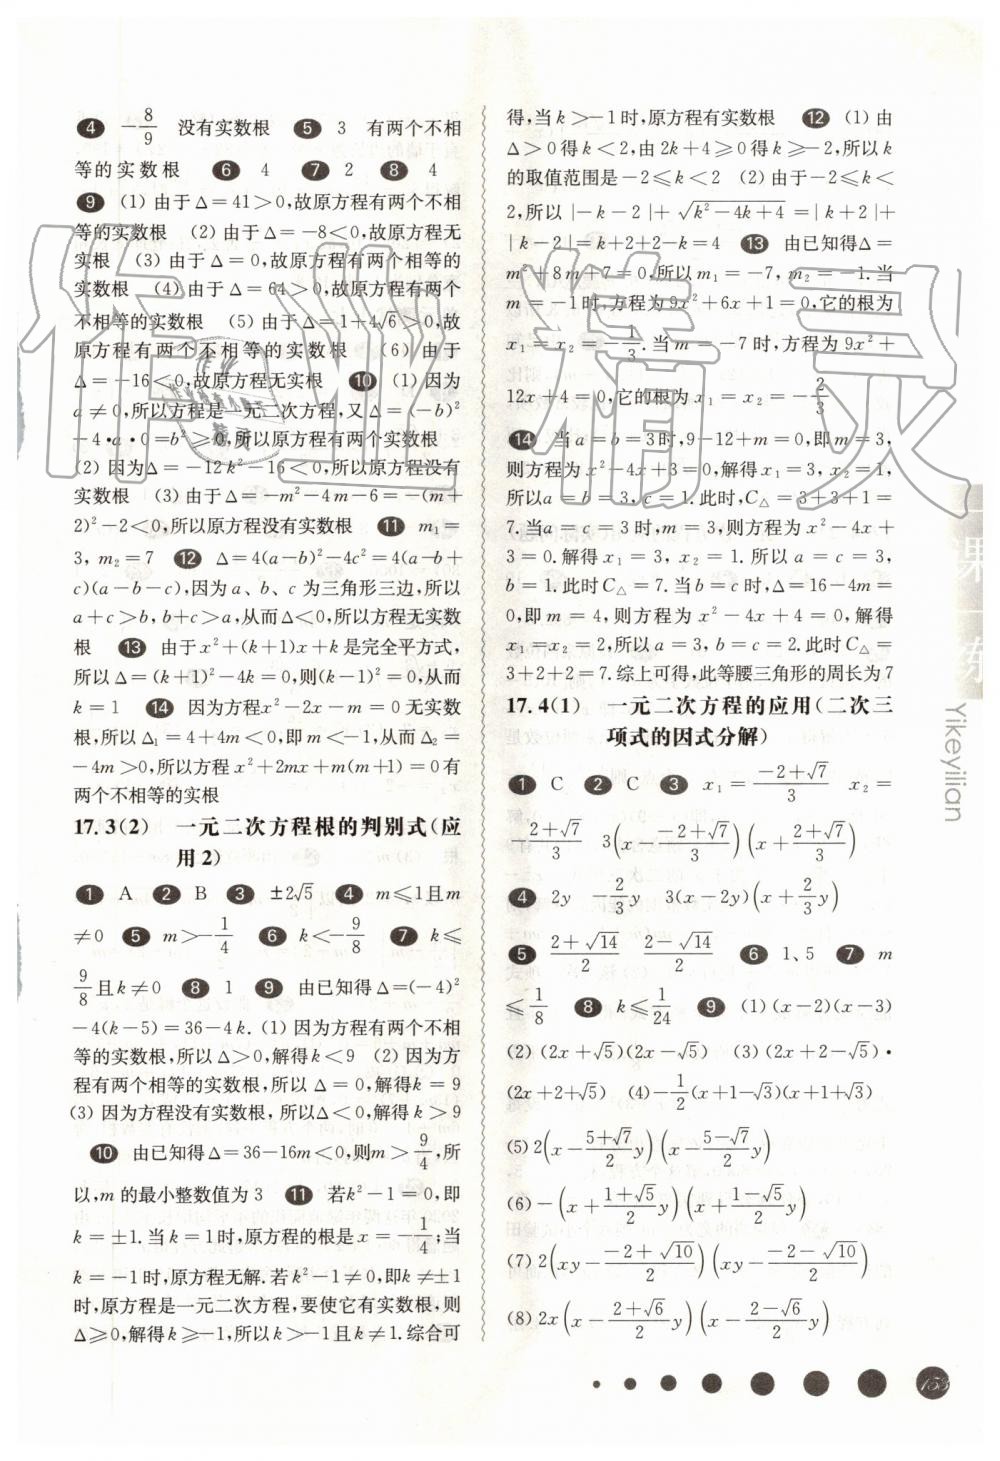 4 -8/9 没有实数根 5 3 有两个不相
等的实数根 6 4 7 2 8 4
9 (1) 由于Δ=41>0,故原方程有两个不相
等的实数根 (2) 由于Δ=-8<0,故原方程无
实根 (3) 由于Δ=0,故原方程有两个相等的
实数根 (4) 由于Δ=64>0,故原方程有两个
不相等的实数根 (5) 由于Δ=1+4√6>0,故
原方程有两个不相等的实数根 (6) 由于
Δ=-16<0,故原方程无实根 10 (1) 因为
a≠0,所以方程是一元二次方程,又Δ=(-b)²
-4·a·0=b²≥0,所以原方程有两个实数根
(2) 因为Δ=-12k²-16<0,所以原方程没有
实数根 (3) 由于Δ=-m²-4m-6=-(m+
2)²-2<0,所以原方程没有实数根 11 m₁=
3, m₂=7 12 Δ=4(a-b)²-4c²=4(a-b+
c)(a-b-c),因为a、b、c为三角形三边,所以
a+c>b, b+c>a,从而Δ<0,原方程无实数
根 13 由于x²+(k+1)x+k是完全平方式,
所以Δ=(k+1)²-4k=0,则(k-1)²=0,从而
k=1 14 因为方程x²-2x-m=0无实数
根,所以Δ₁=4+4m<0,即m<-1,从而Δ₂=
-4m>0,所以方程x²+2mx+m(m+1)=0有
两个不相等的实根
17.3(2) 一元二次方程根的判别式(应
用2)
1 A 2 B 3 ±2√5 4 m≤1且m
≠0 5 m>-1/4 6 k<-9/8 7 k≤
9/8且k≠0 8 1 9 由已知得Δ=(-4)²
-4(k-5)=36-4k.(1) 因为方程有两个不相
等的实数根,所以Δ>0,解得k<9 (2) 因为方
程有两个相等的实数根,所以Δ=0,解得k=9
(3) 因为方程没有实数根,所以Δ<0,解得k>9
10 由已知得Δ=36-16m<0,则m>9/4,所
以,m的最小整数值为3 11 若k²-1=0,即
k=±1.当k=1时,原方程的根是x=-1/4;当
k=-1时,原方程无解.若k²-1≠0,即k≠±1
时,原方程是一元二次方程,要使它有实数根,则
Δ≥0,解得k≥-1,所以k>-1且k≠1.综合可
得,当k>-1时,原方程有实数根 12 (1) 由
Δ>0得k<2,由2k+4≥0得k≥-2,所以k
的取值范围是-2≤k<2 (2) 由于-2≤k<
2,所以|-k-2|+√(k²-4k+4)=|k+2|+
|k-2|=k+2+2-k=4 13 由已知得Δ=
m²+8m+7=0,所以m₁=-7, m₂=-1.当
m=-1时,方程为9x²+6x+1=0,它的根为
x₁=x₂=-1/3.当m=-7时,方程为9x²+
12x+4=0,它的根为x₁=x₂=-2/3
14 当a=b=3时,9-12+m=0,即m=3,
则方程为x²-4x+3=0,解得x₁=3, x₂=1,
所以a=b=3, c=1.此时,C△=3+3+1=
7.当a=c=3时,m=3,则方程为x²-4x+
3=0.解得x₁=3, x₂=1.所以a=c=3,
b=1.此时C△=7.当b=c时,Δ=16-4m=
0,即m=4,则方程为x²-4x+4=0,解得
x₁=x₂=2,所以a=3, b=c=2.此时C△=
3+2+2=7.综上可得,此等腰三角形的周长为7
17.4(1) 一元二次方程的应用(二次三
项式的因式分解)
1 C 2 C 3 x₁=(-2+√7)/3 x₂=
-(2+√7)/3 3(x-(-2+√7)/3)(x+(2+√7)/3)
4 2y -2/3y 3(x-2y)(x+2/3y)
5 (2+√14)/2 (2-√14)/2 6 1、5 7 m
≤1/8 8 k≤1/24 9 (1)(x-2)(x-3)
(2) (2x+√5)(2x-√5) (3) (2x+2-√5)·
(2x+2+√5) (4)-1/2(x+1-√3)(x+1+√3)
(5) 2(x-(5+√7)/2y)(x-(5-√7)/2y)
(6) -(x+(1+√5)/2y)(x+(1-√5)/2y)
(7) 2(xy-(-2+√10)/2)(xy-(-2-√10)/2)
(8) 2x(x-(2+√6)/2y)(x-(2-√6)/2y)
一课一练
Yikeyilian
153
作业精灵